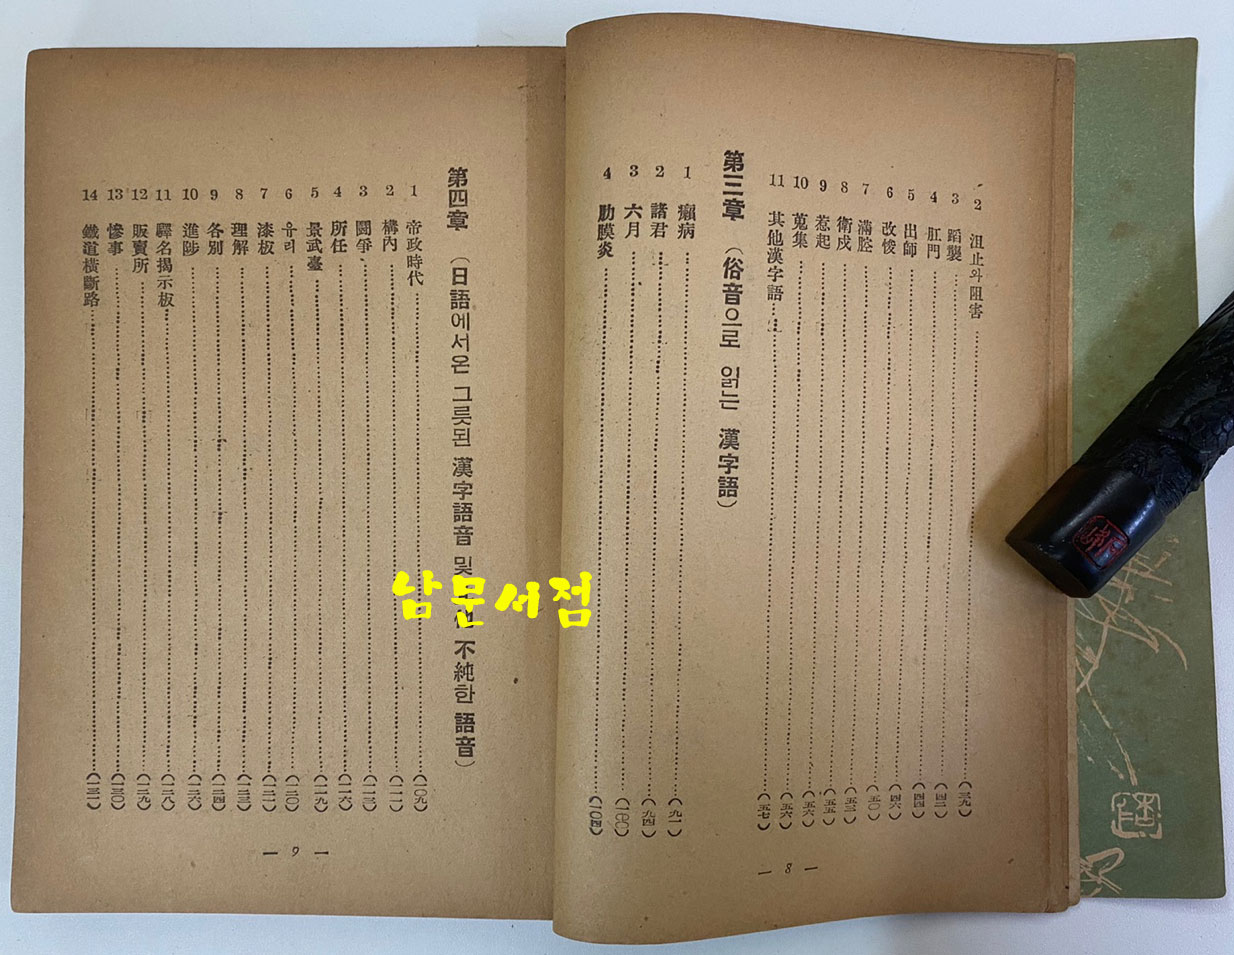 2 沮止와阻害 (三九)
3 蹈襲 (四二)
4 肛門 (四二)
5 出師 (四四)
6 改悛 (四六)
7 滿腔 (五〇)
8 衛戍 (五三)
9 惹起 (五五)
10 蒐集 (五六)
11 其他漢字語 (五七)
第三章 (俗音으로 읽는 漢字語)
1 癩病 (九一)
2 諸君 (九四)
3 六月 (一〇〇)
4 肋膜炎 (一〇四)
— 8 —
第四章 (日語에서온 그릇된 漢字語音 및 他 不純한 語音)
1 帝政時代 (一〇九)
2 構內 (一一一)
3 鬪爭 (一一三)
4 所任 (一一六)
5 景武臺 (一一九)
6 유리 (一二〇)
7 漆板 (一二一)
8 理解 (一二三)
9 各別 (一二四)
10 進陟 (一二六)
11 驛名揭示板 (一二八)
12 販賣所 (一二九)
13 慘事 (一三〇)
14 鐵道橫斷路 (一三一)
— 9 —
남문서점